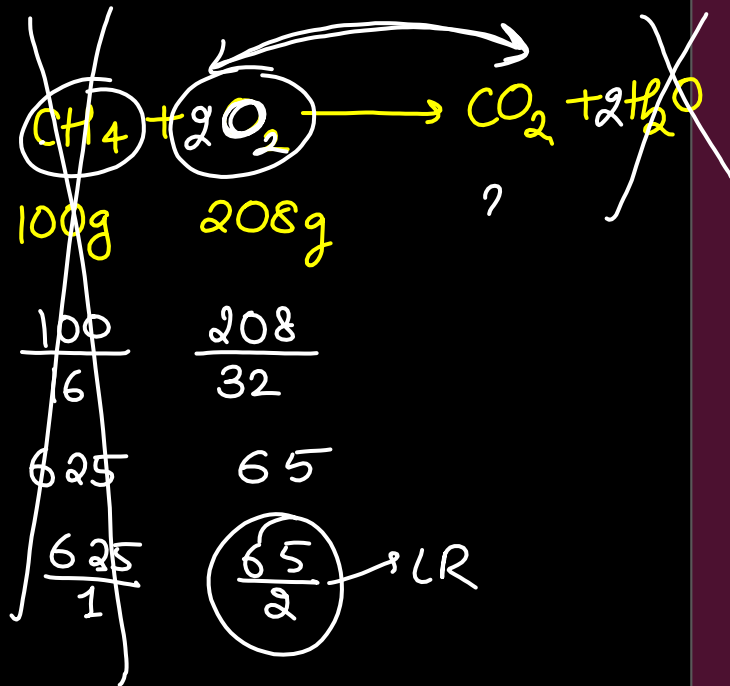 CH4 + 2O2 → CO2 + 2H2O
100g 208g ?
100/16 208/32
625 65
625/1 65/2 → LR